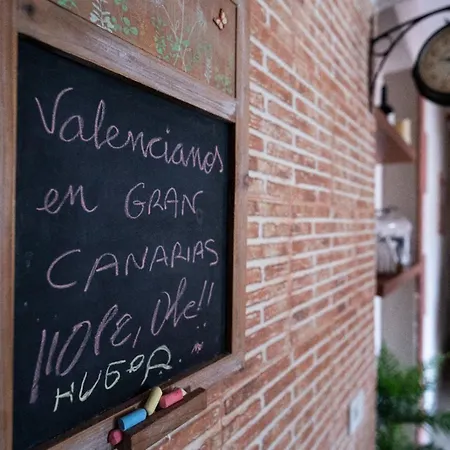 Valencianos
en GRAN
CANARIAS
¡¡Ole, Ole!!